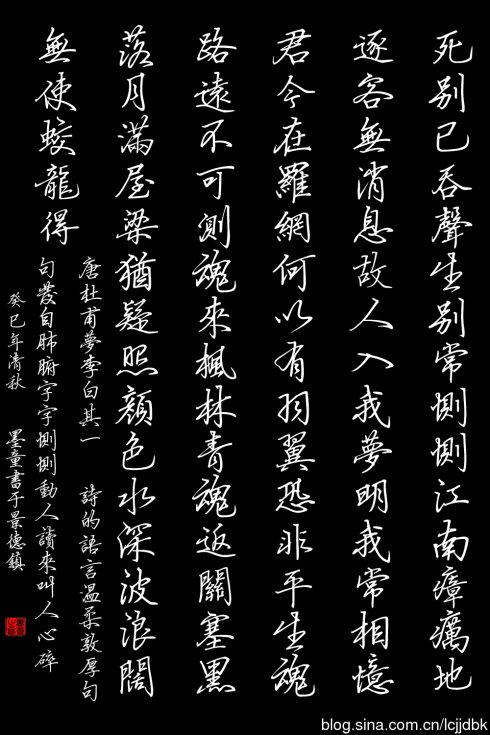 死别已吞聲生别常惻惻江南瘴癘地
逐客無消息故人入我夢明我常相憶
君今在羅網何以有羽翼恐非平生魂
路遠不可測魂來楓林青魂返關塞黑
落月滿屋梁猶疑照顏色水深波浪闊
無使蛟龍得
唐杜甫夢李白其一 詩的語言溫柔敦厚句
句發自肺腑字字惻惻動人讀來叫人心碎
癸巳年清秋 墨童書于景德鎮
blog.sina.com.cn/lcjjdbk